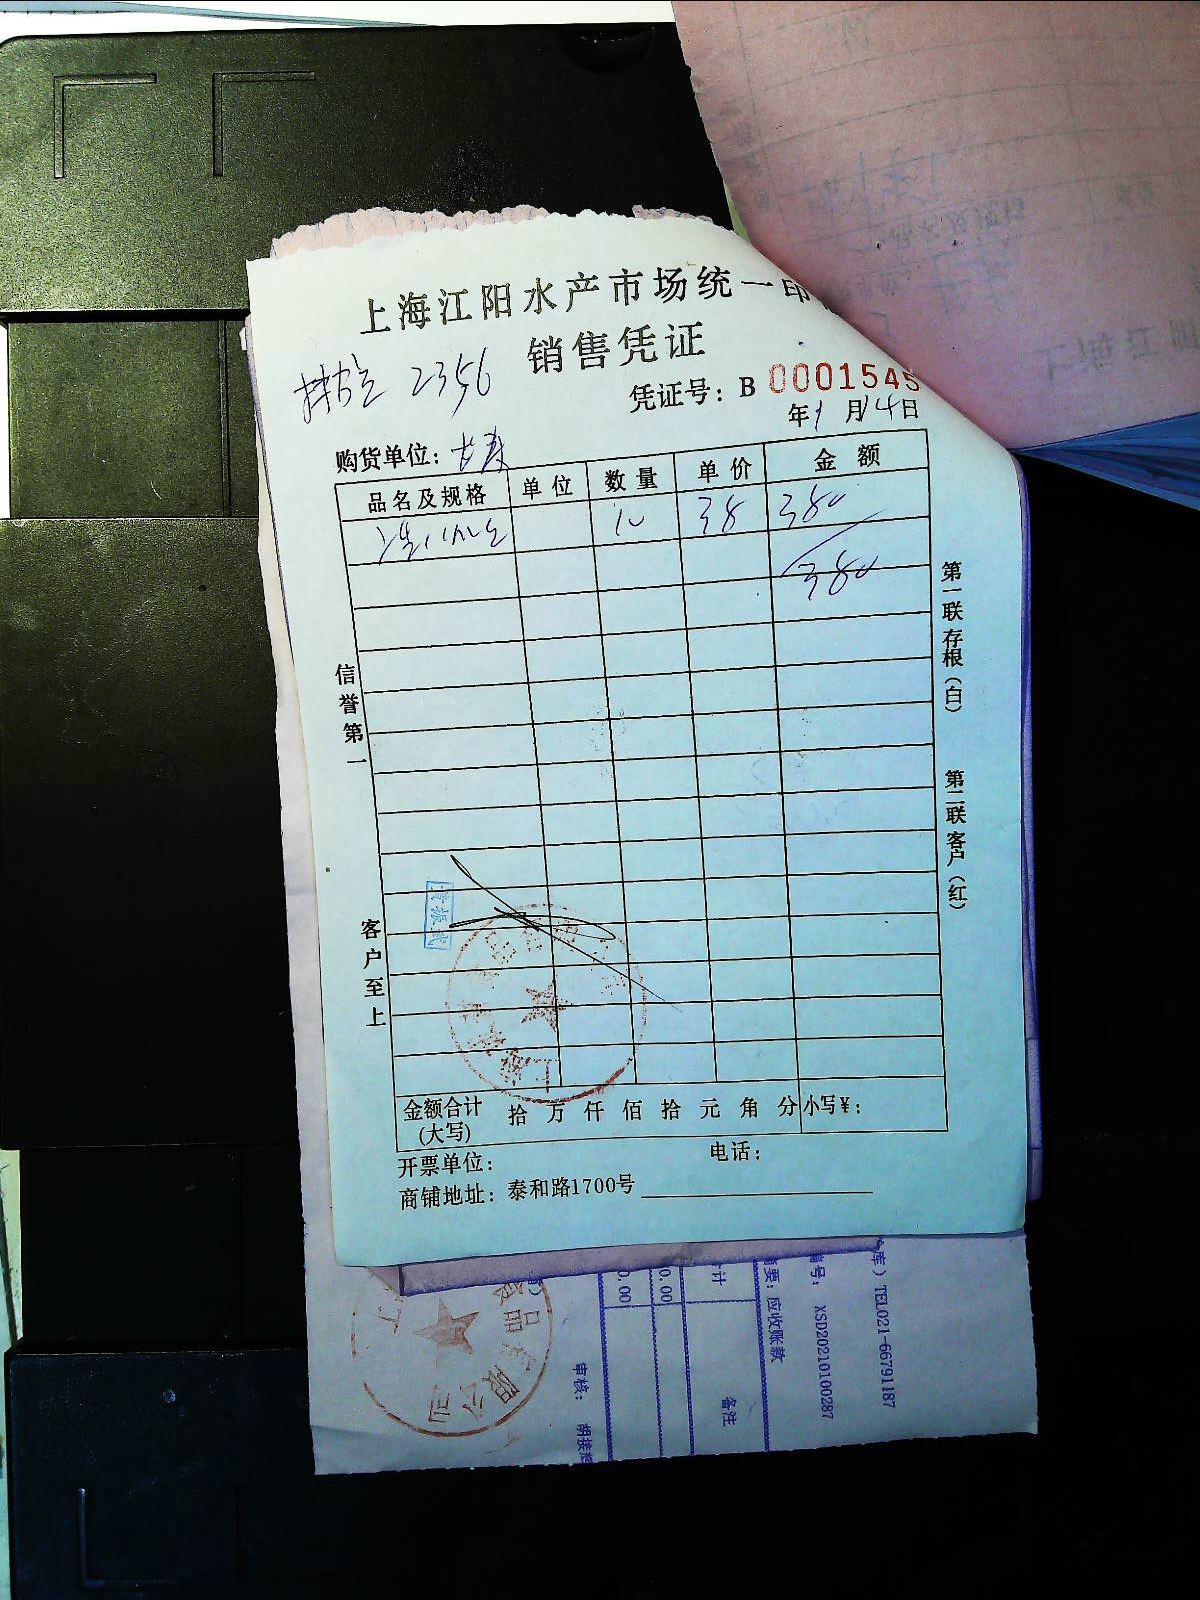 上海江阳水产市场统一印
销售凭证
2356
凭证号：B 0001545
年1月14日
购货单位：
品名及规格 单位 数量 单价 金额
10 38 380
380
信誉第一
客户至上
第一联存根（白）
第二联客户（红）
金额合计（大写） 拾 万 仟 佰 拾 元 角 分 小写¥：
开票单位： 电话：
商铺地址：泰和路1700号
库）TEL021-66791187
编号： XSD20210100287
摘要：应收账款
计
备注
0.00
0.00
审核：
食品有限公司